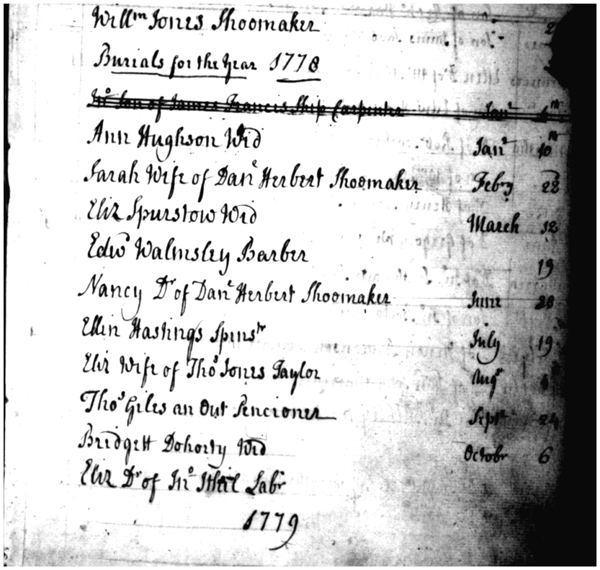 Willm Jones Shoomaker
Burials for the Year 1778
Jno. Son of James Francis Ship Carpenter Janr. 4th
Ann Hughson Wid Janr. 10th
Sarah Wife of Danl. Herbert Shoomaker Febry 22
Eliz Spurstow Wid March 12
Edwd. Walmsley Barber 19
Nancy Dr. of Danl. Herbert Shoomaker June 20
Ellin Hastings Spinstr July 19
Eliz Wife of Thos. Jones Taylor Augt
Thos. Giles an Out Pencioner Sept 24
Bridgett Dohorty Wid Octobr 6
Eliz Dr. of Jno. Labr
1779